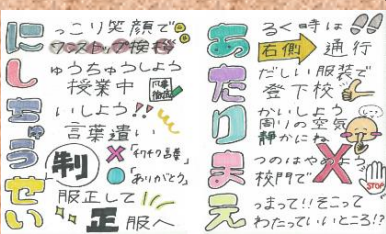 にっこり笑顔で
ワンストップ挨拶
しゅうちゅうしよう
授業中
ちゅういしよう!!
言葉遣い
「チクチク言葉」
「ありがとう」
せい
制
服正して
正服へ
あるく時は
右側通行
ただしい服装で
登下校
りかいしよう
周りの空気
静かにね
まつのはやめよう
校門で
STOP
えっまって!!そこって
わたっていいところ!?